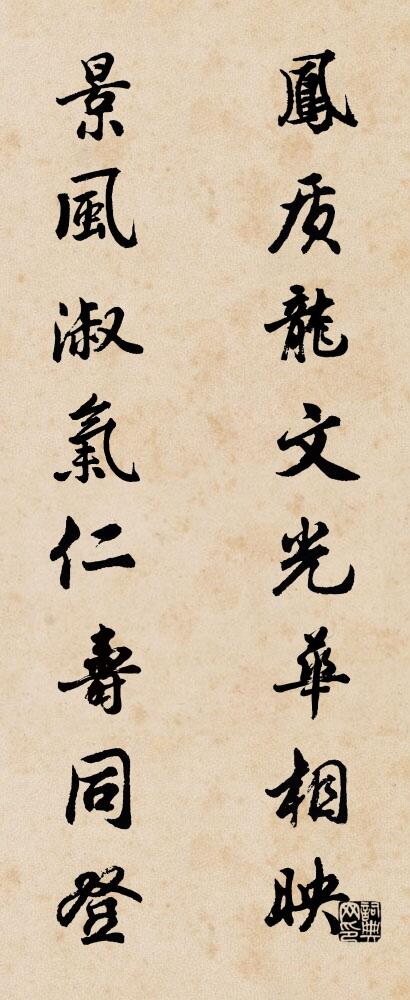 鳳质龍文光華相映
景風淑氣仁壽同登
詞典网印